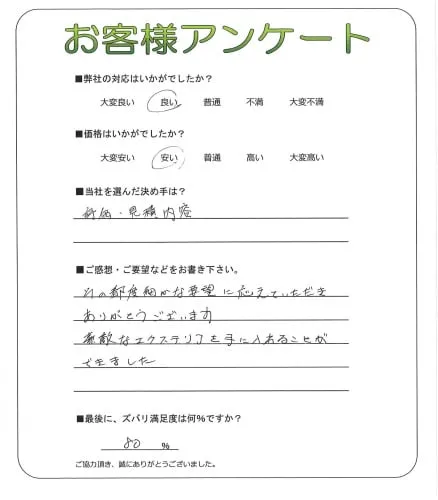 お客様アンケート
■弊社の対応はいかがでしたか？
大変良い 良い 普通 不満 大変不満
■価格はいかがでしたか？
大変安い 安い 普通 高い 大変高い
■当社を選んだ決め手は？
評価・見積内容
■ご感想・ご要望などをお書き下さい。
その都度細かな要望に応えていただき
ありがとうございます
素敵なエクステリアを手に入れることが
できました
■最後に、ズバリ満足度は何％ですか？
80 %
ご協力頂き、誠にありがとうございました。